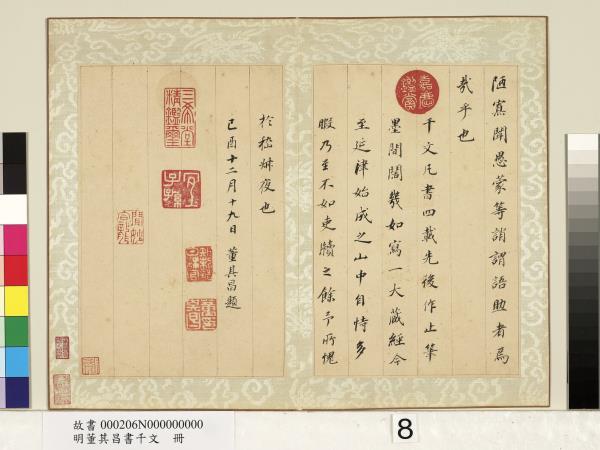 陋寡聞愚蒙等誚謂語助者焉
哉乎也
千文凡書四載先後作止筆
墨間闊幾如寫一大藏經今
至延津始成之山中自恃多
暇乃至不如吏牘之餘予所愧
於嵇叔夜也
己酉十二月十九日 董其昌題
嘉慶鑑賞
三希堂精鑑璽
宜子孫
故書 000206N000000000
明董其昌書千文 冊
8